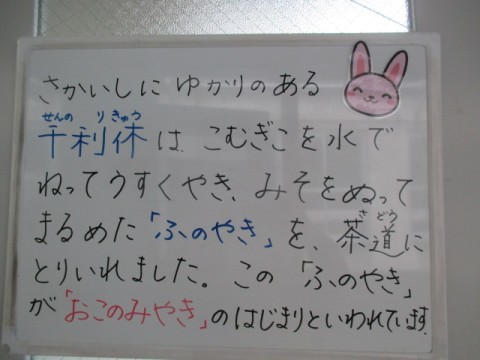 さかいしに ゆかりのある
せんの りきゅう
千利休は、こむぎこを水で
ねってうすくやき、みそをぬって
まるめた「ふのやき」を、茶道に
さどう
とりいれました。この「ふのやき」
が「おこのみやき」のはじまりといわれています。